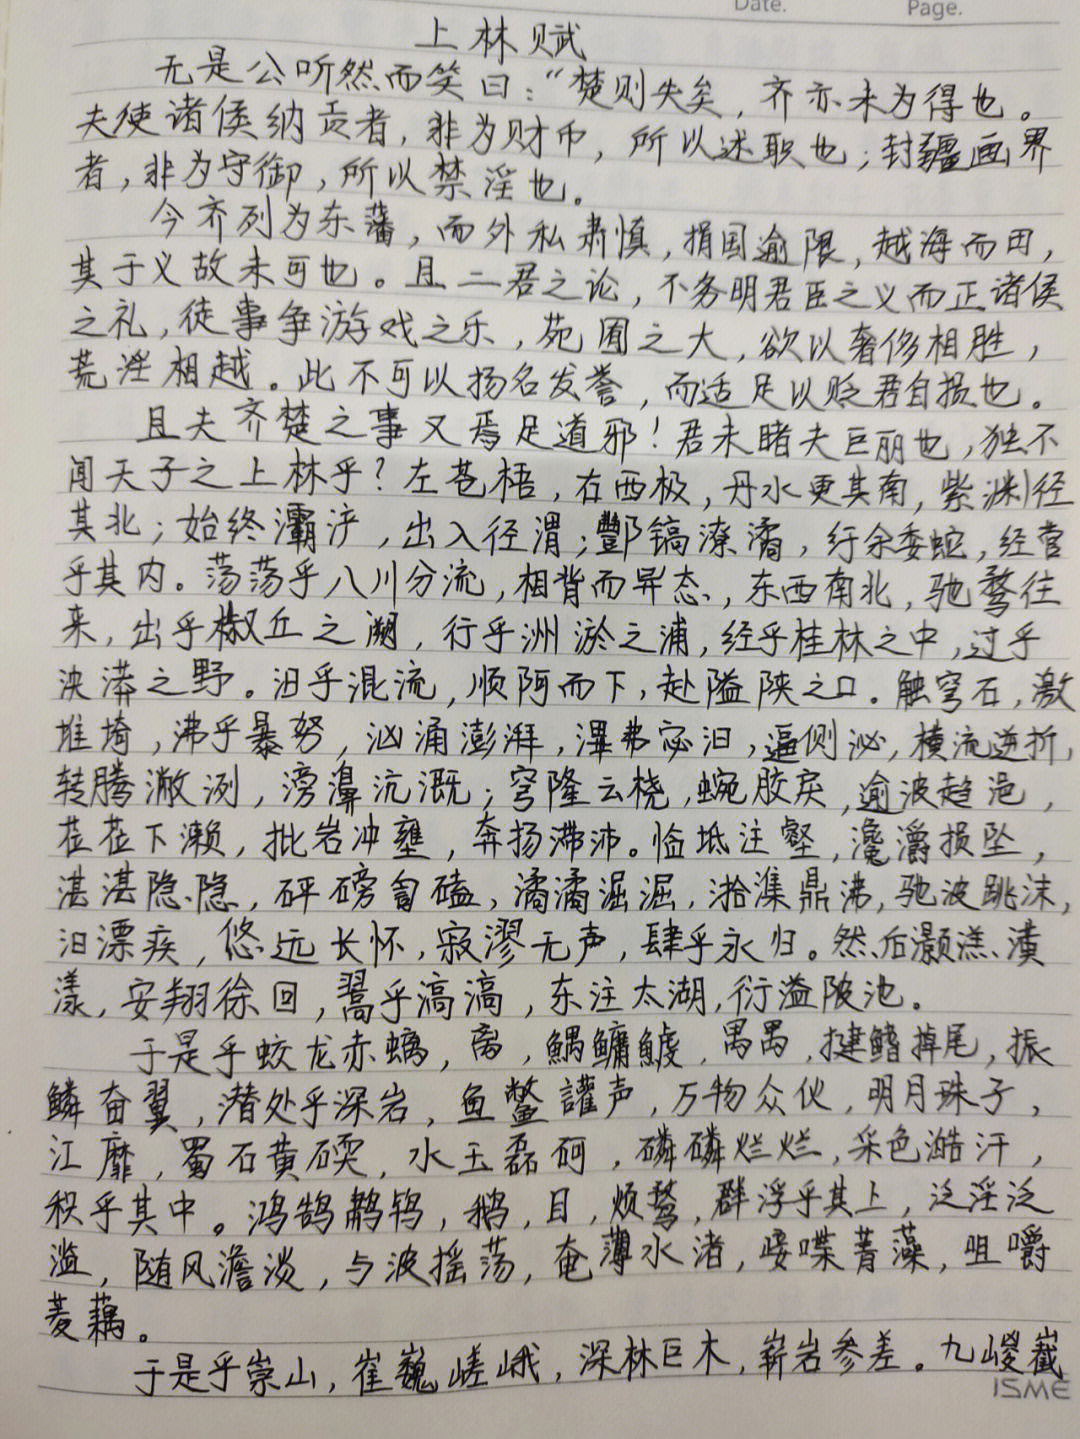 Date.
Page.
上林赋
无是公听然而笑曰："楚则失矣，齐亦未为得也。
夫使诸侯纳贡者，非为财币，所以述职也；封疆画界
者，非为守御，所以禁淫也。
今齐列为东藩，而外私肃慎，捐国逾限，越海而田，
其于义故未可也。且二君之论，不务明君臣之义而正诸侯
之礼，徒事争游戏之乐，苑囿之大，欲以奢侈相胜，
荒淫相越。此不可以扬名发誉，而适足以贬君自损也。
且夫齐楚之事又焉足道邪！君未睹夫巨丽也，独不
闻天子之上林乎？左苍梧，右西极，丹水更其南，紫渊径
其北；始终灞浐，出入径渭；酆镐潦潏，纡余委蛇，经营
乎其内。荡荡乎八川分流，相背而异态，东西南北，驰骛往
来，出乎椒丘之溯，行乎洲淤之浦，经乎桂林之中，过乎
泱漭之野。汩乎混流，顺阿而下，赴隘陕之口。触穹石，激
堆埼，沸乎暴努，汹涌澎湃，滭弗宓汩，逼侧泌，横流逆折，
转腾潎洌，滂濞沆溉；穹隆云桡，蜿胶戾，逾波趋浥，
莅莅下濑，批岩冲壅，奔扬滞沛。临坻注壑，瀺灂损坠，
湛湛隐隐，砰磅訇磕，潏潏淈淈，湁潗鼎沸，驰波跳沫，
汩漂疾，悠远长怀，寂漻无声，肆乎永归。然后灏溔潢
漾，安翔徐回，翯乎滈滈，东注太湖，衍溢陂池。
于是乎蛟龙赤螭，离，鰅鳙鰬，禺禺，揵鳍掉尾，振
鳞奋翼，潜处乎深岩，鱼鳖讙声，万物众伙，明月珠子，
江靡，蜀石黄碝，水玉磊砢，磷磷烂烂，采色澔汗，
积乎其中。鸿鹄鹔鸨，鹅，目，烦鹜，群浮乎其上，泛淫泛
滥，随风澹淡，与波摇荡，奄薄水渚，唼喋菁藻，咀嚼
菱藕。
于是乎崇山，崔巍嵯峨，深林巨木，崭岩参差。九嵕嶻
ISME